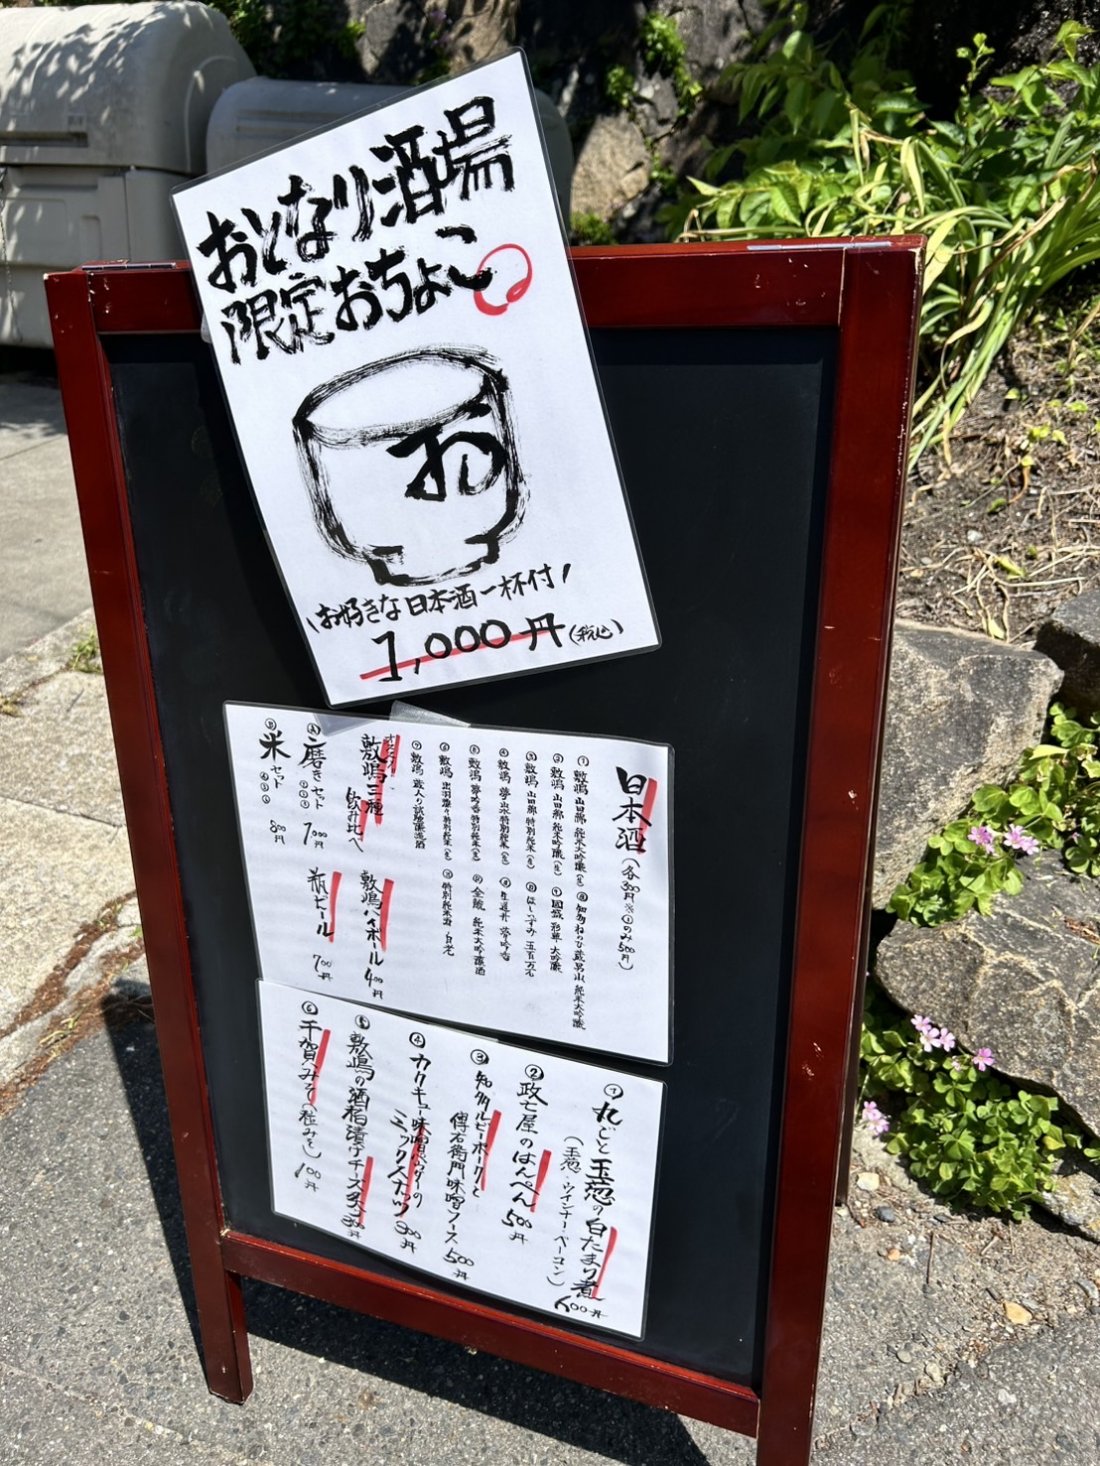 おとなり酒場
限定おちょこ
お
お好きな日本酒一杯付!
1,000円(税込)
日本酒(各300円※①のみ500円)
① 敷嶋 山田錦 純米大吟醸(生)
② 敷嶋 山田錦 純米吟醸(生)
③ 敷嶋 山田錦 特別純米(生)
④ 敷嶋 夢山水 特別純米(生)
⑤ 敷嶋 夢吟香 特別純米(生)
⑥ 敷嶋 出羽燦々 特別純米(生)
⑦ 敷嶋 蔵人
⑧ 知多 ねのひ 蔵 男山 純米大吟醸
⑨ 国盛 彩華 大吟醸
ほしいずみ
生道井
金鯱 純米大吟醸酒
特別純米酒 白老
敷嶋三種
飲み比べ
Ⓐ 磨きセット
700円
Ⓑ 米セット
800円
敷嶋ハイボール 400円
瓶ビール 700円
① 丸ごと玉葱の白たまり煮
(玉葱・ウインナー・ベーコン)
600円
② 政七屋のはんぺん 500円
③ 知多ハッピーポークと
傳右衛門味噌ソース 500円
④ カクキュー味噌パウダーの
ミックスナッツ 300円
⑤ 敷嶋の酒粕漬けチーズ炙り 300円
⑥ 千賀みそ(粒みそ) 100円